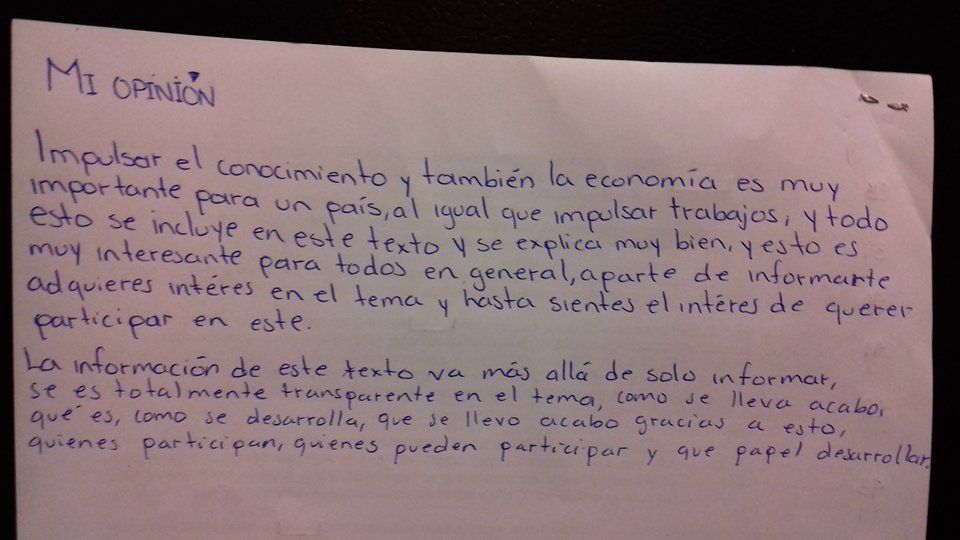 MI OPINIÓN
Impulsar el conocimiento y también la economía es muy
importante para un país, al igual que impulsar trabajos, y todo
esto se incluye en este texto y se explica muy bien, y esto es
muy interesante para todos en general, aparte de informarte
adquieres intéres en el tema y hasta sientes el intéres de querer
participar en este.
La información de este texto va más allá de solo informar,
se es totalmente transparente en el tema, como se lleva acabo,
que es, como se desarrolla, que se llevo acabo gracias a esto,
quienes participan, quienes pueden participar y que papel desarrollar.